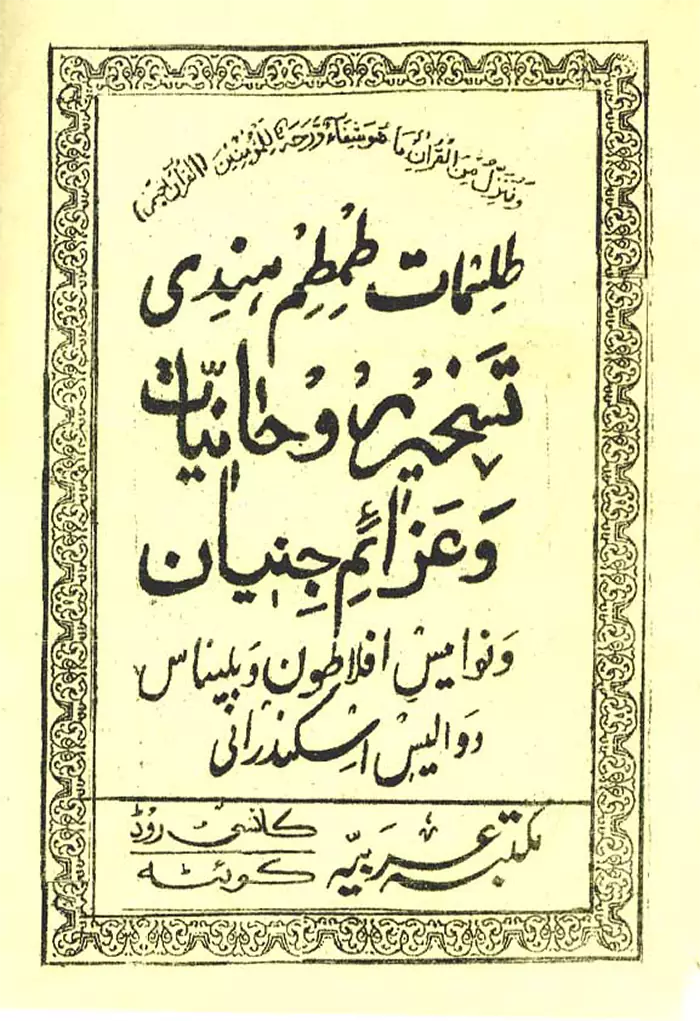 وَنُنَزِّلُ مِنَ الْقُرْآنِ مَا هُوَ شِفَاءٌ وَّرَحْمَةٌ لِّلْمُؤْمِنِيْنَ (القرآن
طلسمات طِمْطِم هِندِی
تسخیر روحانیّات
وَعَزائمِ جِنیان
وَنوامیسِ افلاطون وَبلیناس
دوالیسِ اسکندرانی
مکتبه عَرَبیّه
کانسی روڈ
کوئٹه